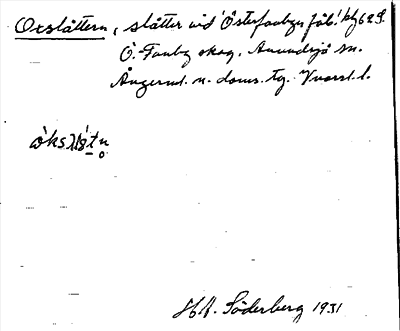 Oxslåttern, slåtter vid 'Österfanbyn fäb.' blg 629.
Ö. Fanby skog, Anundsjö sn.
Ångerml. n. doms. tg. Vnorrl. l.
H.A. Söderberg 1931